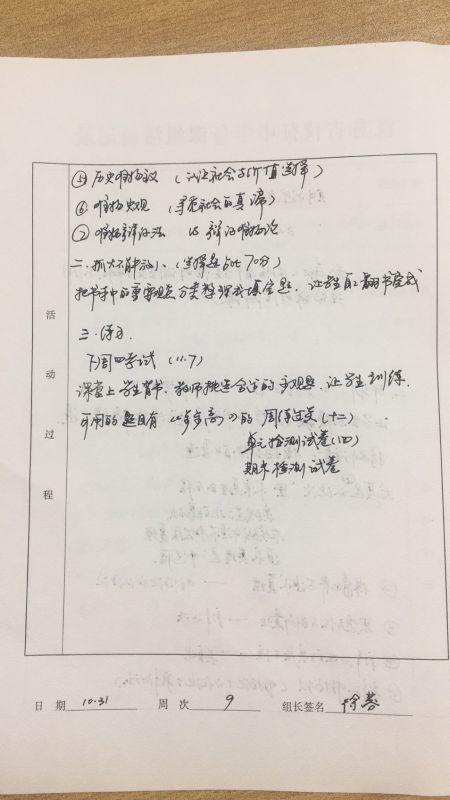 ⑤ 历史唯物主义 (认识社会与价值选择)
⑥ 唯物史观 (寻觅社会的真谛)
⑦ 唯物辩证法 VS 辩证唯物论
二、抓大不放小 (选择题占比70分)
把书中的重要观点分类整理成填空题,让学生自己翻书完成
三、练习
下周四考试 (11.7)
课堂上学生背书,教师挑选合适的主观题,让学生训练.
可用的题目有《步步高》的周练过关(十二)
单元检测试卷(四)
期末检测试卷
活动过程
日 期 10.31 周 次 9 组长签名 徐